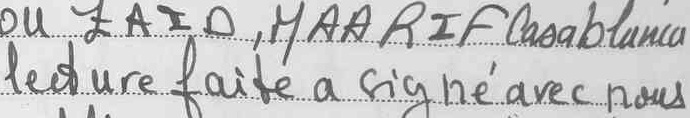 ou ZAID, MAARIF Casablanca
lecture faite a signé avec nous